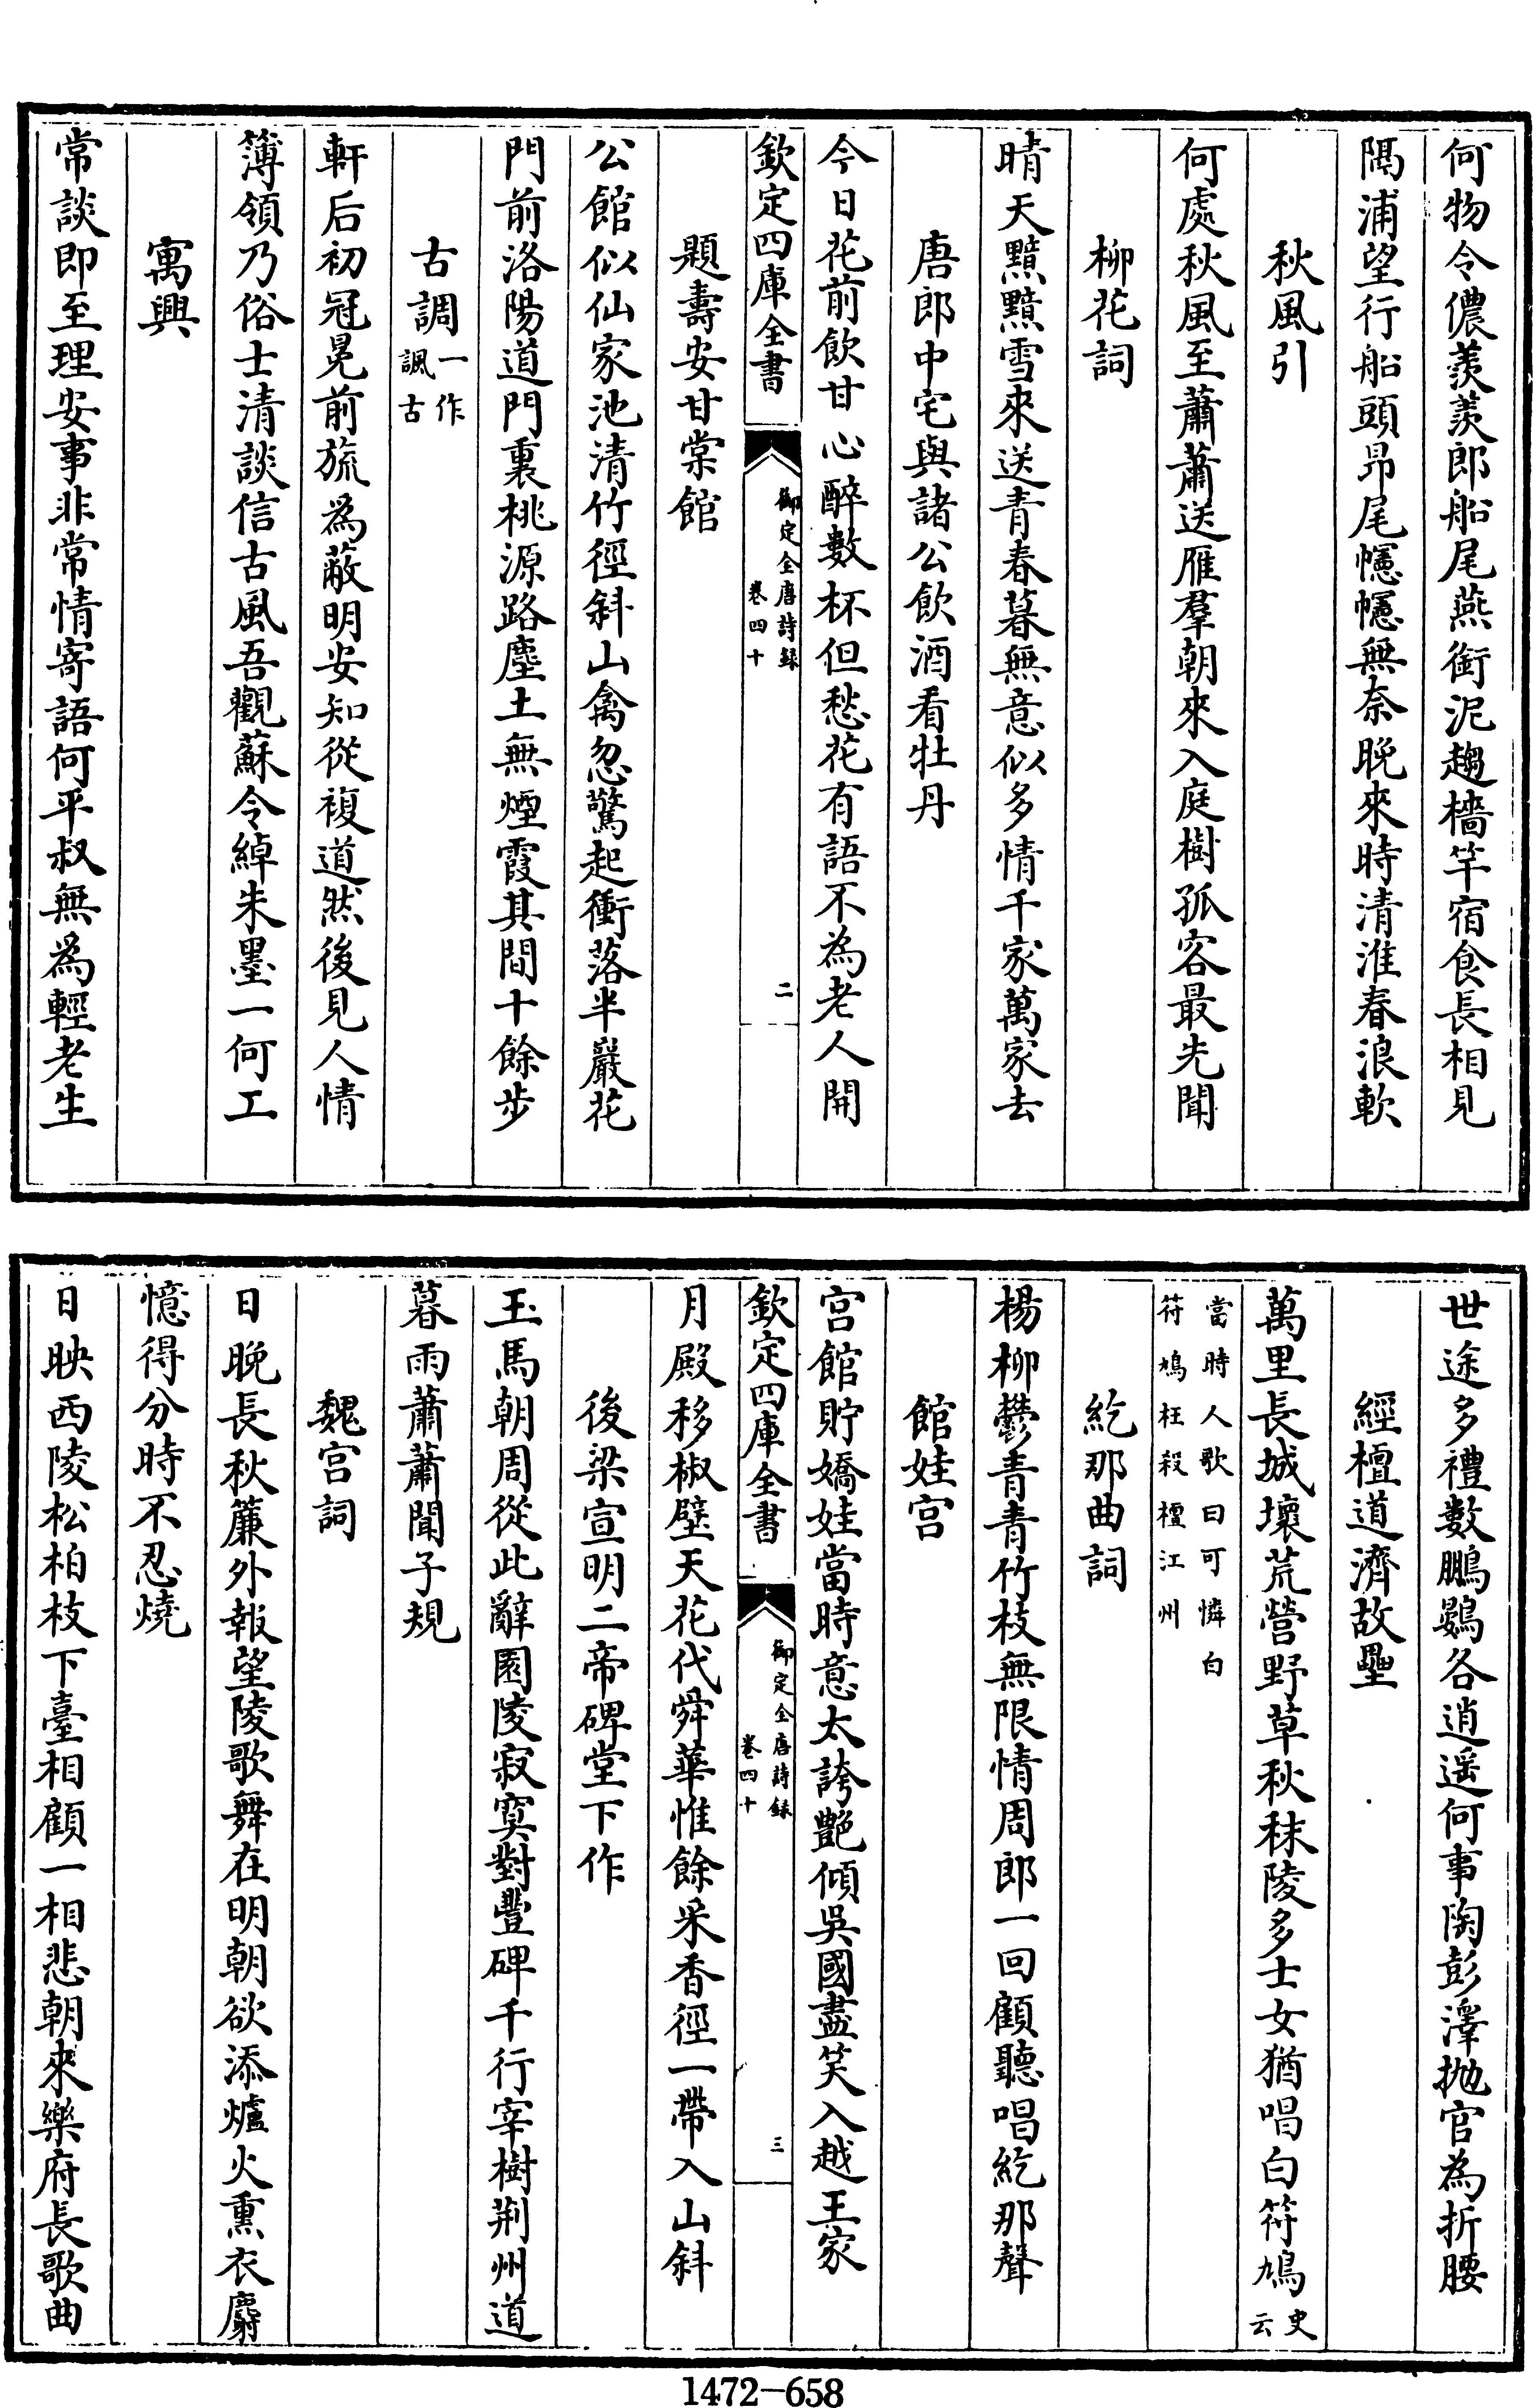 何物令儂羨羨郎船尾燕銜泥趨檣竿宿食長相見
隅浦望行船頭昻尾幰幰無奈晚來時清淮春浪軟
秋風引
何處秋風至蕭蕭送雁羣朝來入庭樹孤客最先聞
柳花詞
晴天黯黯雪來送青春暮無意似多情千家萬家去
唐郎中宅與諸公飲酒看牡丹
今日花前飲甘心醉數杯但愁花有語不為老人開
欽定四庫全書
御定全唐詩録
卷四十
二
題壽安甘棠館
公館似仙家池清竹徑斜山禽忽驚起衝落半巖花
門前洛陽道門裏桃源路塵土無煙霞其間十餘步
古調一作諷古
軒后初冠冕前旒為蔽明安知從複道然後見人情
簿領乃俗士清談信古風吾觀蘇令綽朱墨一何工
寓興
常談即至理安事非常情寄語何平叔無為輕老生
世途多禮數鵬鷃各逍遥何事陶彭澤抛官為折腰
經檀道濟故壘
萬里長城壞荒營野草秋秣陵多士女猶唱白符鳩史云
當時人歌曰可憐白符鳩枉殺檀江州
紇那曲詞
楊柳鬱青青竹枝無限情周郎一回顧聽唱紇那聲
館娃宫
宫館貯嬌娃當時意太誇艶傾吳國盡笑入越王家
欽定四庫全書
御定全唐詩録
卷四十
三
月殿移椒壁天花代舜華惟餘采香徑一帶入山斜
後梁宣明二帝碑堂下作
玉馬朝周從此辭園陵寂寞對豐碑千行宰樹荆州道
暮雨蕭蕭聞子規
魏宫詞
日晚長秋簾外報望陵歌舞在明朝欲添爐火熏衣麝
憶得分時不忍燒
日映西陵松柏枝下臺相顧一相悲朝來樂府長歌曲
1472-658